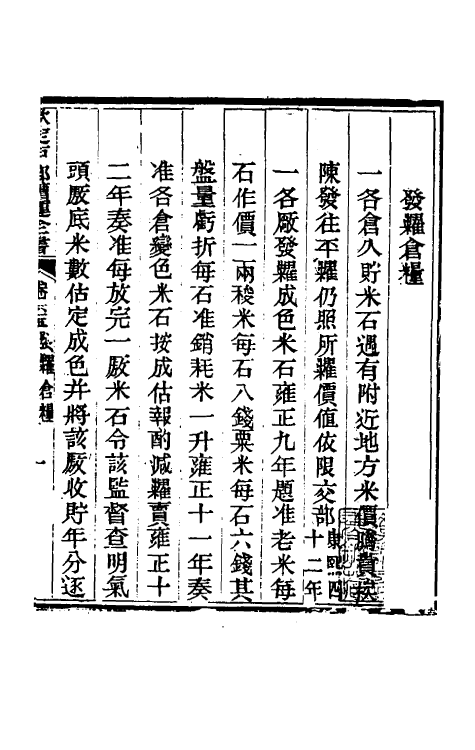 發糶倉糧
一各倉久貯米石遇有附近地方米價騰貴挨
陳發往平糶仍照所糶價值依限交部康熙四十二年
一各厫發糶成色米石雍正九年題准老米每
石作價一兩稜米每石八錢粟米每石六錢其
盤量虧折每石准銷耗米一升雍正十一年奏
准各倉變色米石按成估報酌減糶賣雍正十
二年奏准每放完一厫米石令該監督查明氣
頭厫底米數估定成色并將該厫收貯年分逐
欽定戶部漕運全書 卷 發糶倉糧 一